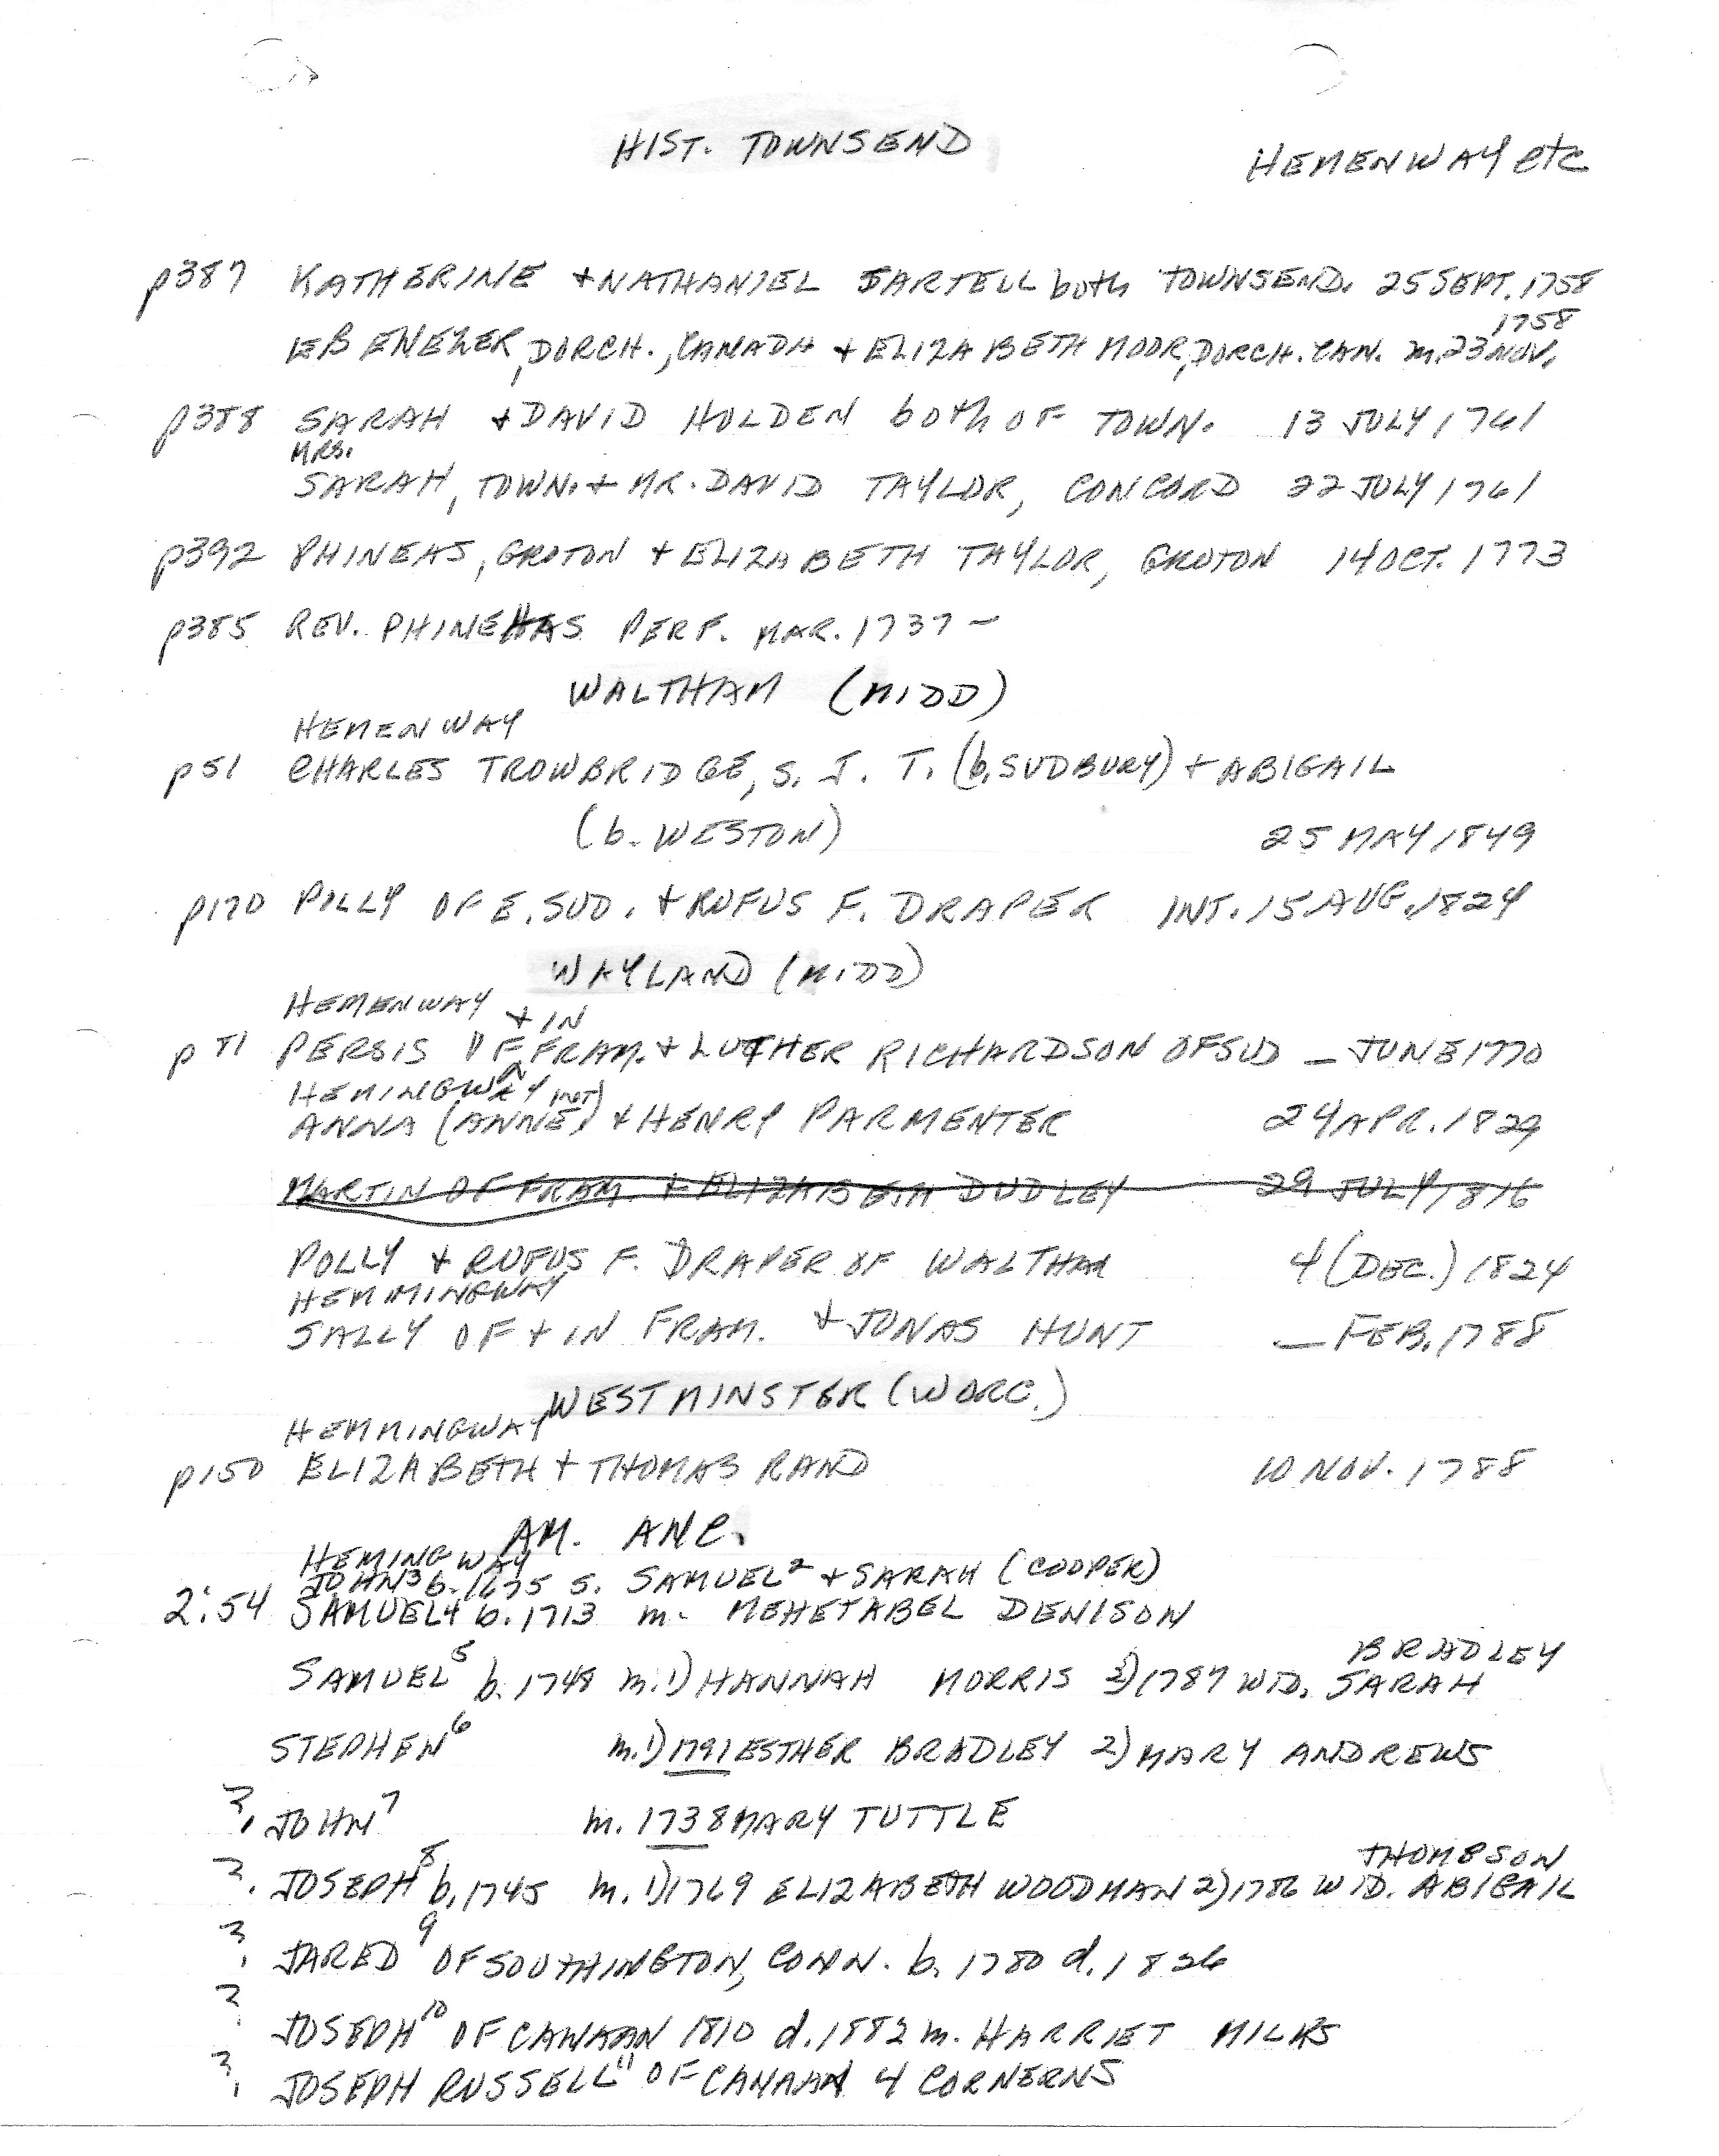 HIST. TOWNSEND
HEMENWAY etc
p387 KATHERINE + NATHANIEL SARTELL both TOWNSEND. 25 SEPT. 1758
1758
EBENEZER, DORCH., CANADA + ELIZABETH MOOR, DORCH. CAN. m. 23 NOV.
p388 SARAH + DAVID HOLDEN both OF TOWN. 13 JULY 1761
MRS.
SARAH, TOWN. + MR. DAVID TAYLOR, CONCORD 22 JULY 1761
p392 PHINEAS, GROTON + ELIZABETH TAYLOR, GROTON 14 OCT. 1773
p385 REV. PHINEHAS PERF. MAR. 1737 –
WALTHAM (MIDD)
HEMENWAY
p51 CHARLES TROWBRIDGE, S. J. T. (b. SUDBURY) + ABIGAIL
(b. WESTON) 25 MAY 1849
p170 POLLY OF E. SUD. + RUFUS F. DRAPER INT. 15 AUG. 1824
WAYLAND (MIDD)
HEMENWAY + IN
p 81 PERSIS OF ^ FRAM. + LUTHER RICHARDSON OF SUD – JUNE 1770
HEMINGWAY int)
ANNA (ANNE) + HENRY PARMENTER 24 APR. 1829
MARTIN OF FRAM. + ELIZABETH DUDLEY 29 JULY 1816
POLLY + RUFUS F. DRAPER OF WALTHAM 4 (DEC.) 1824
HEMMINGWAY
SALLY OF + IN FRAM. + JONAS HUNT – FEB. 1788
WESTMINSTER (WORC.)
HEMMINGWAY
p150 ELIZABETH + THOMAS RAND 10 NOV. 1788
AM. ANC.
HEMINGWAY
JOHN3 b. 1675 S. SAMUEL2 + SARAH (COOPER)
2:54 SAMUEL4 b. 1713 m. MEHETABEL DENISON
BRADLEY
SAMUEL5 b. 1748 m. 1) HANNAH MORRIS 2) 1787 WID. SARAH
STEPHEN6 m. 1) 1791 ESTHER BRADLEY 2) MARY ANDREWS
? JOHN7 m. 1738 MARY TUTTLE
THOMPSON
? JOSEPH8 b. 1745 m. 1) 1769 ELIZABETH WOODMAN 2) 1786 WID. ABIGAIL
? JARED9 OF SOUTHINGTON, CONN. b. 1780 d. 1826
? JOSEPH10 OF CANAAN 1810 d. 1882 m. HARRIET MILKS
? JOSEPH RUSSELL11 OF CANAAN 4 CORNERNS